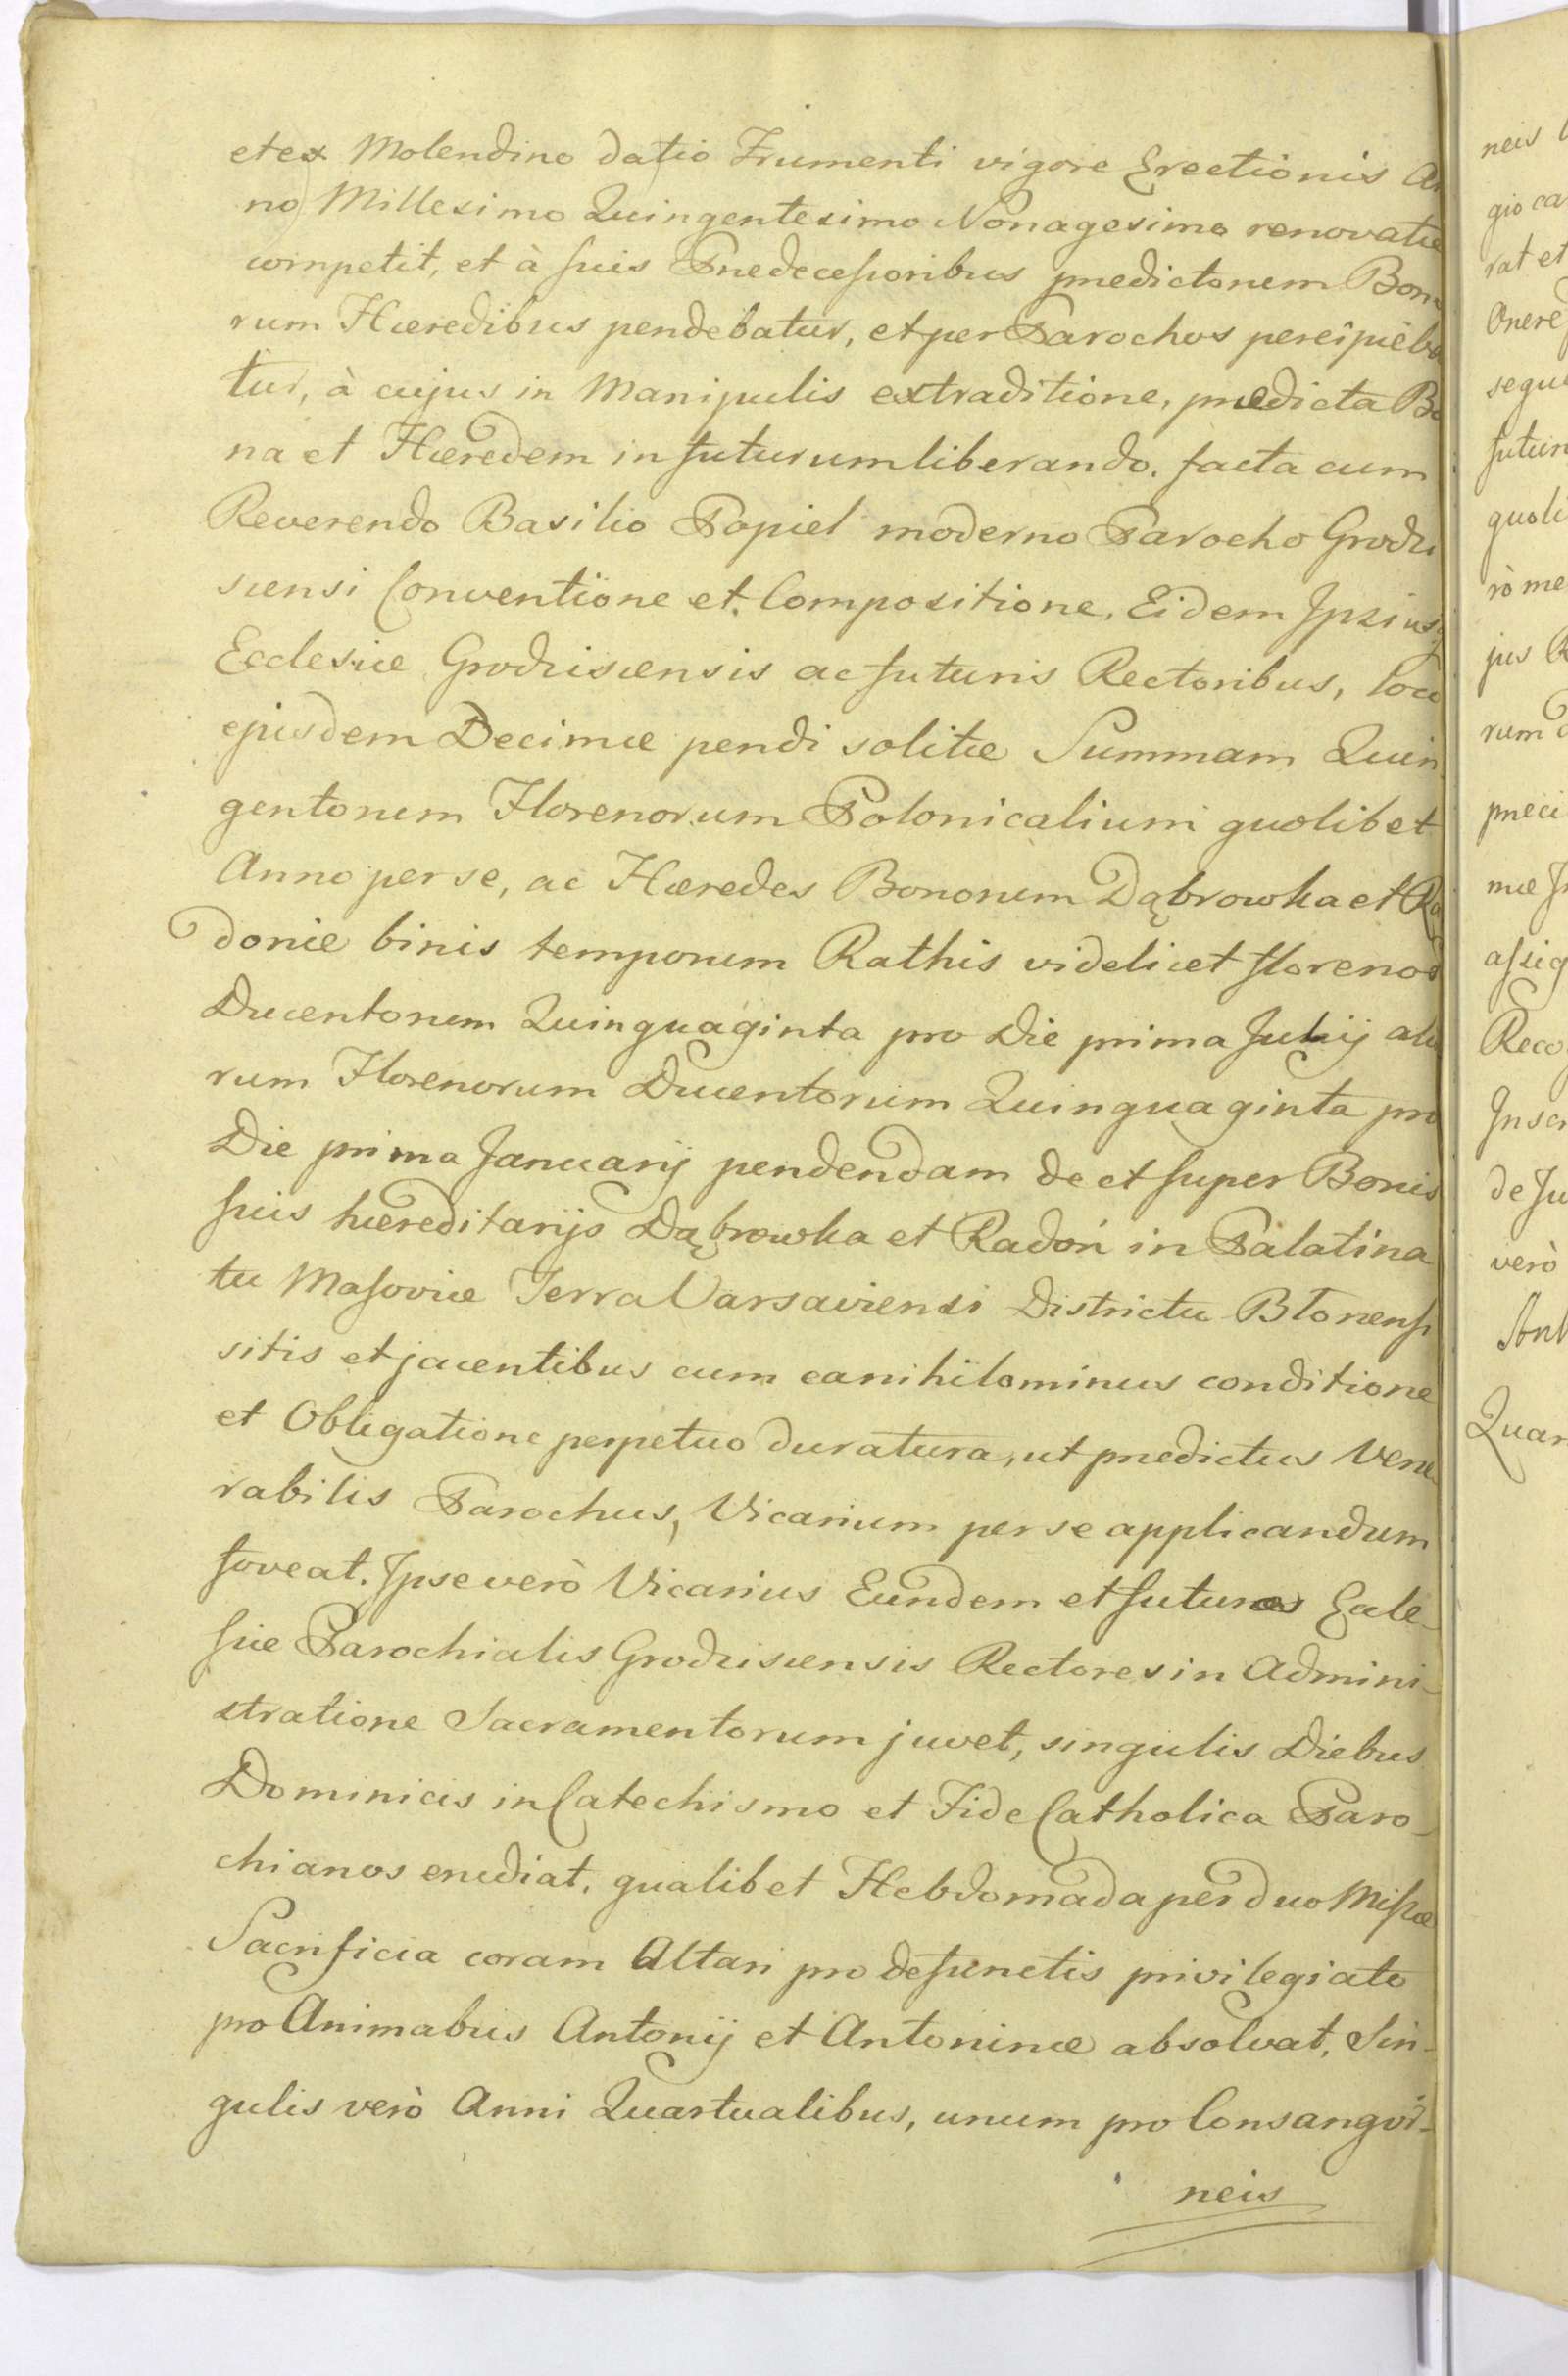 et ex Molendino datio Frumenti vigore Erectionis An
no Millesimo Quingentesimo Nonagesimo renovatæ
competit, et à suis Prædecessoribus prædictorum Bono
rum Hæredibus pendebatur, et per Parochos percipieba
tur, à cujus in Manipulis extraditione, prædicta Bo
na et Hæredem in futurum liberando. facta cum
Reverendo Basilio Popiel moderno Parocho Grodzi
scensi Conventione et Compositione, Eidem Ipsiusq
Ecclesiæ Grodziscensis ac futuris Rectoribus, loco
ejusdem Decimæ pendi solitæ Summam Quin
gentorum Florenorum Polonicalium quolibet
Anno per se, ac Hæredes Bonorum Dąbrowka et Ra
donie binis temporum Rathis videlicet florenos
Ducentorum Quinquaginta pro Die prima Julij alio
rum Florenorum Ducentorum Quinquaginta pro
Die prima Januarij pendendam de et super Bonis
suis hæreditarijs Dąbrowka et Radoń in Palatina
tu Masoviæ Terra Varsaviensi Districtu Błonensi
sitis et jacentibus cum ea nihilominus conditione
et Obligatione perpetuo duratura, ut prædictus Vene
rabilis Parochus, Vicarium per se applicandum
foveat. Ipse verò Vicarius Eundem et futuros Eccle-
siæ Parochialis Grodziscensis Rectores in Admini-
stratione Sacramentorum juvet, singulis Diebus
Dominicis in Catechismo et Fide Catholica Paro-
chianos erudiat, qualibet Hebdomada per duo Missæ
Sacrificia coram Altari pro defunctis privilegiato
pro Animabus Antonij et Antoninæ absolvat, Sin-
gulis verò Anni Quartualibus, unum pro Consangvi-
neis
neis
gio ca
rat et
Onere
sequ
futur
quoli
rò me
jus R
rum
præci
mæ
assig
Reco
Inscr
de Ju
verò
Ant
Quar